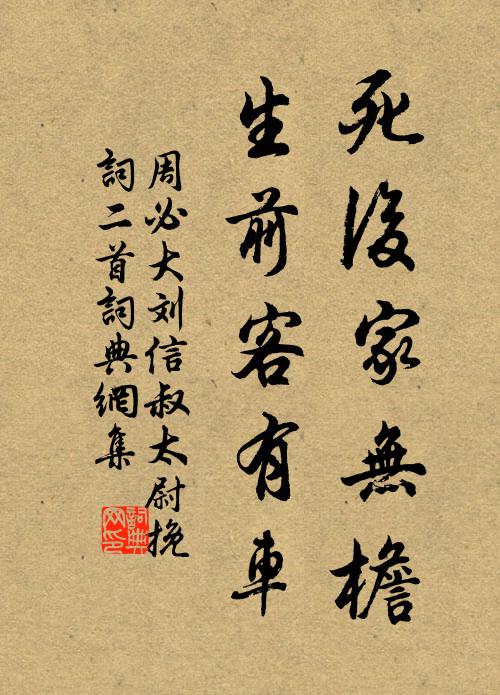 死後家無檐
生前客有車
周必大刘信叔太尉挽
詞二首詞典網集
詞典網印